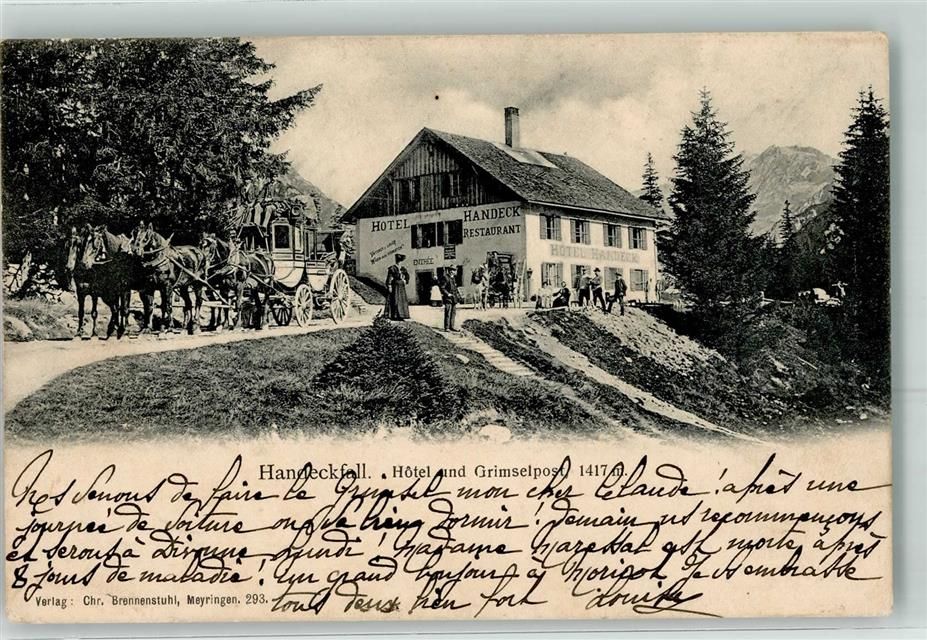 HOTEL HANDECK
RESTAURANT
ENTRÉE
HOTEL HANDECK
Handeckfall. Hôtel und Grimselpost, 1417 m.
Ns venons de faire le Grimsel mon cher Claude! après une
journée de voiture on va bien dormir! Demain ns recommençons
et serons à Divonne Lundi! Madame est morte après
8 jours de maladie! Un grand bonjour à Je vs embrasse
tous deux bien fort Louise
Verlag: Chr. Brennenstuhl, Meyringen. 293.